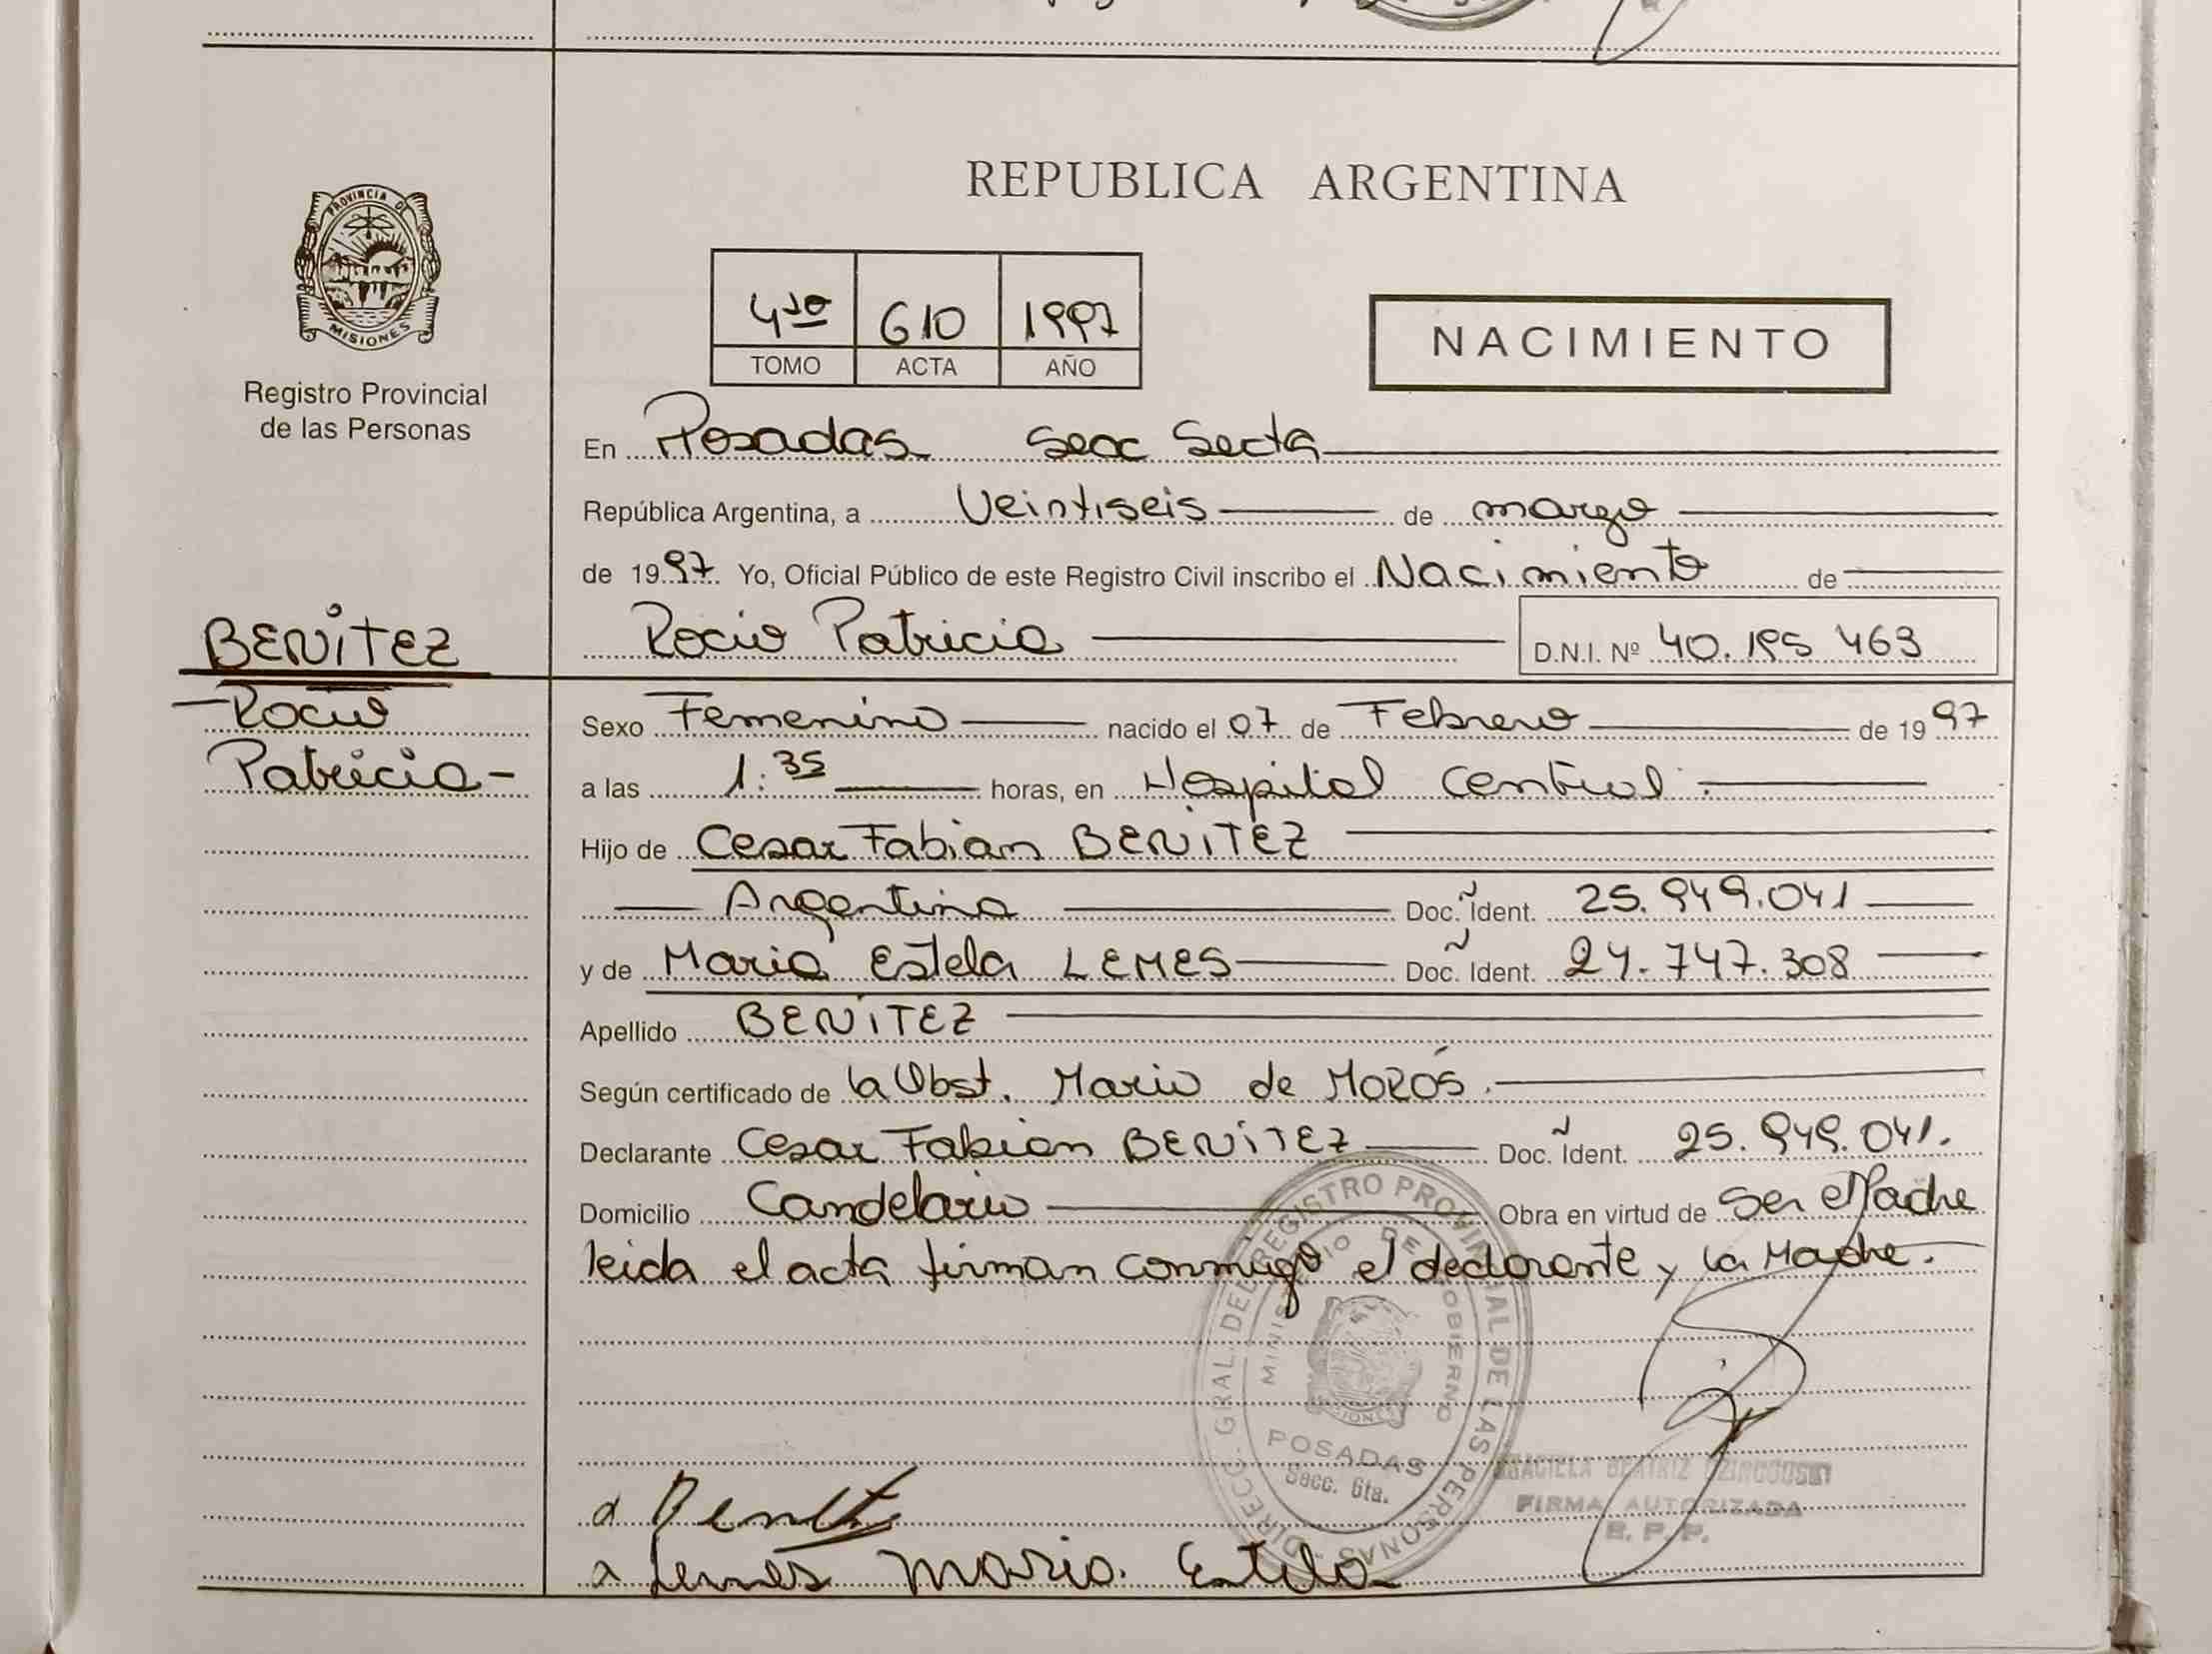 REPUBLICA ARGENTINA
PROVINCIA DE
MISIONES
Registro Provincial
de las Personas
4to 610 1997
TOMO ACTA AÑO
NACIMIENTO
En Posadas Secc Secta
República Argentina, a Veintiseis de marzo
de 1997 Yo, Oficial Público de este Registro Civil inscribo el Nacimiento de
Rocio Patricia D.N.I. Nº 40.195 463
BENITEZ
Rocio
Patricia-
Sexo Femenino nacido el 07 de Febrero de 1997
a las 1:35 horas, en Hospital Central.
Hijo de Cesar Fabian BENITEZ
Argentina Doc. Ident. 25.949.041
y de Maria Estela LEMES Doc. Ident. 24.747.308
Apellido BENITEZ
Según certificado de la Obst. Maria de
Declarante Cesar Fabian BENITEZ Doc. Ident. 25.949.041.
Domicilio Candelaria Obra en virtud de Ser Padre
leida el acta firman conmigo el declarante y la Madre.
DIRECC. GRAL. DEL REGISTRO PROVINCIAL DE LAS PERSONAS
MINISTERIO DE GOBIERNO
MISIONES
POSADAS
Secc. 6ta.
BEATRIZ
FIRMA AUTORIZADA
R. P. P.
Lemes Maria Estela